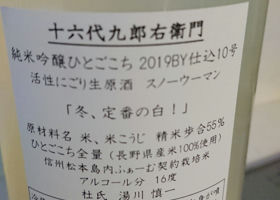 十六代九郎右衛門
純米吟醸ひとごこち 2019BY仕込10号
活性にごり生原酒 スノーウーマン
「冬、定番の白!」
原材料名 米、米こうじ 精米歩合55%
ひとごこち全量(長野県産米100%使用)
信州松本島内ふぁーむ契約栽培米
アルコール分 16度
杜氏 湯川 慎一